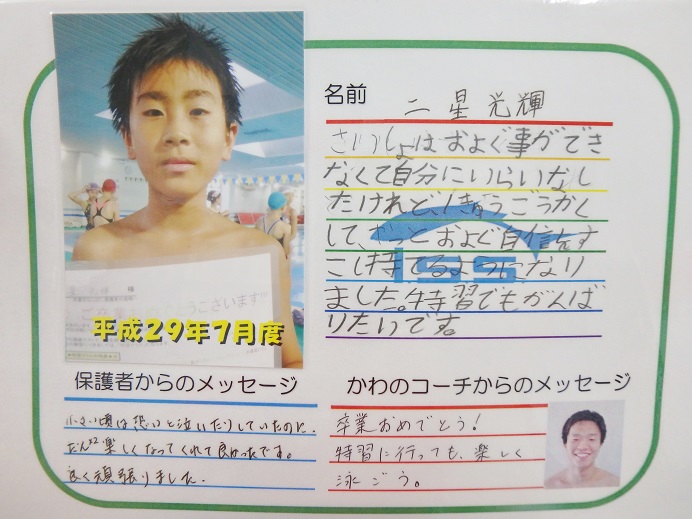 名前 二星光輝
さいしょはおよぐ事ができ
なくて自分にいらいらなし
たけれど、1きゅうごうかく
して、やっとおよぐ自信をす
こし持てるようになり
ました。特習でもがんば
りたいです。
ISS
様
ご卒業おめでとうございます
平成29年7月度
保護者からのメッセージ
小さい頃は恐いと泣いたりしていたのに、
だんだん楽しくなってくれて良かったです。
良く頑張りました。
かわのコーチからのメッセージ
卒業おめでとう!
特習に行っても、楽しく
泳ごう。